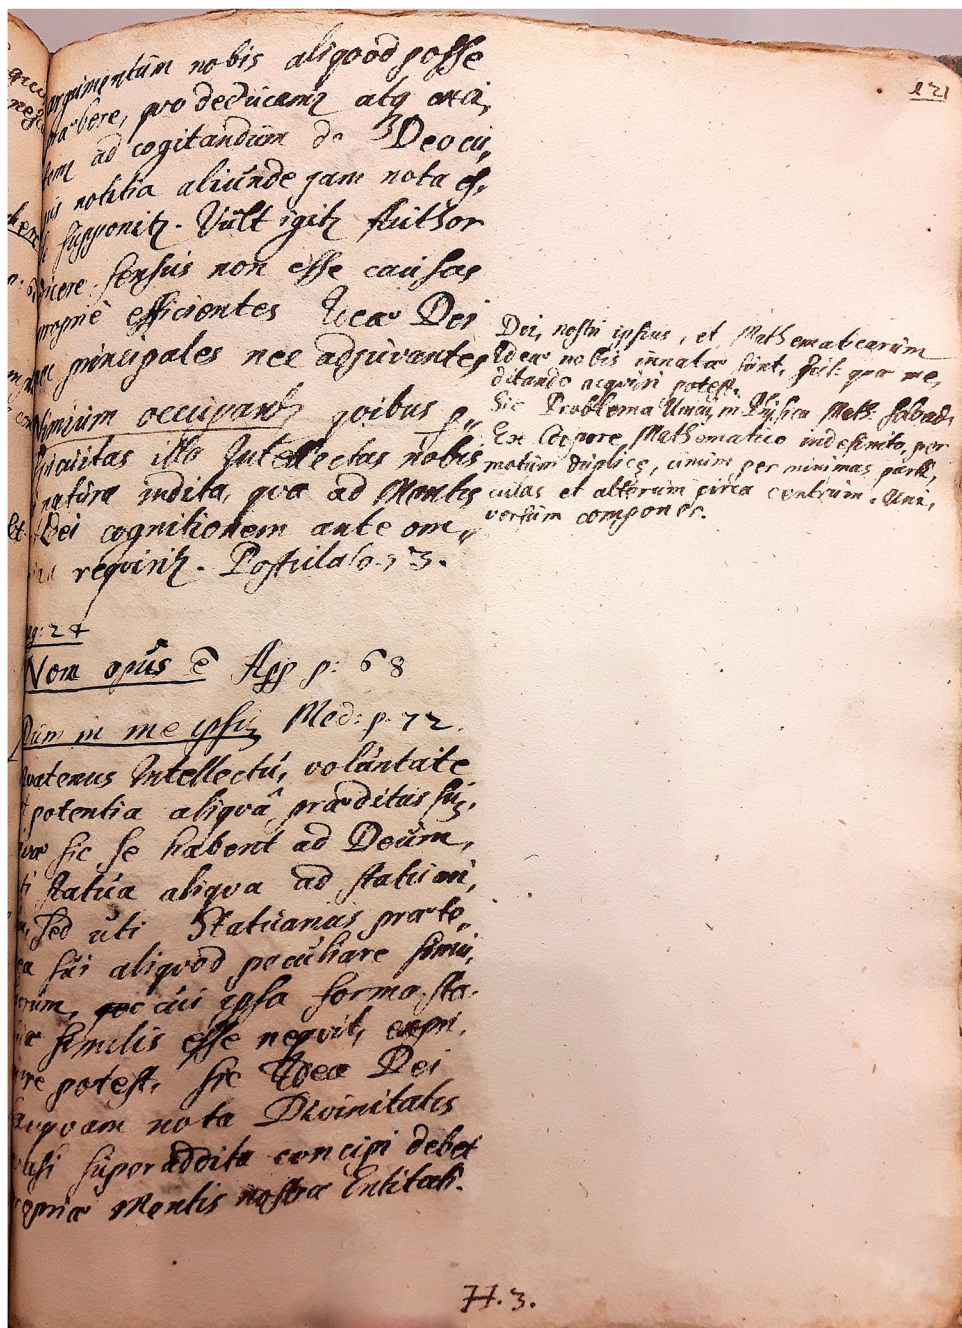 121
argumentum nobis aliquod posse
duvere, quo deducamr atq exci,
ad cogitandum de Deo cu,
notitia aliunde jam nota es,
supponitr. Vult igitr Author
dicere sensus non esse causas
proprie efficientes Ideæ Dei
principales nec adjuvantes
nimium occupantr quibus p,,
illa Intellectus nobis
natura indita, qua ad Mentis
Dei cognitionem ante om,,
requiritr. Postulato. 3.
pag: 24
Non opus ē App p: 68
Dum in me ipsū Med: p. 72.
quatenus Intellectu, voluntate
potentia aliquâ præditus su,
quæ sic se habent ad Deum,
statua aliqua ad statuari,
sed uti Statuarius præte,,
sui aliquod peculiare simu,
cui ipsa forma sta,
similis esse nequit, expri,
potest. sic Idea Dei
tanquam nota Divinitatis
quasi superaddita concipi debet
propriæ Mentis nostræ Entitati.
Dei, nostri ipsius, et Mathematicarum
Ideæ nobis innatæ sunt, quæ me,
ditando acquiri potest.
Sic Problema Unum in Physica Math:
Ex Corpore Mathematico indefinito, per
motum duplicē, unum per minimas parti,
culas et alterum circa centrum. Uni,
versum componere.
H. 3.